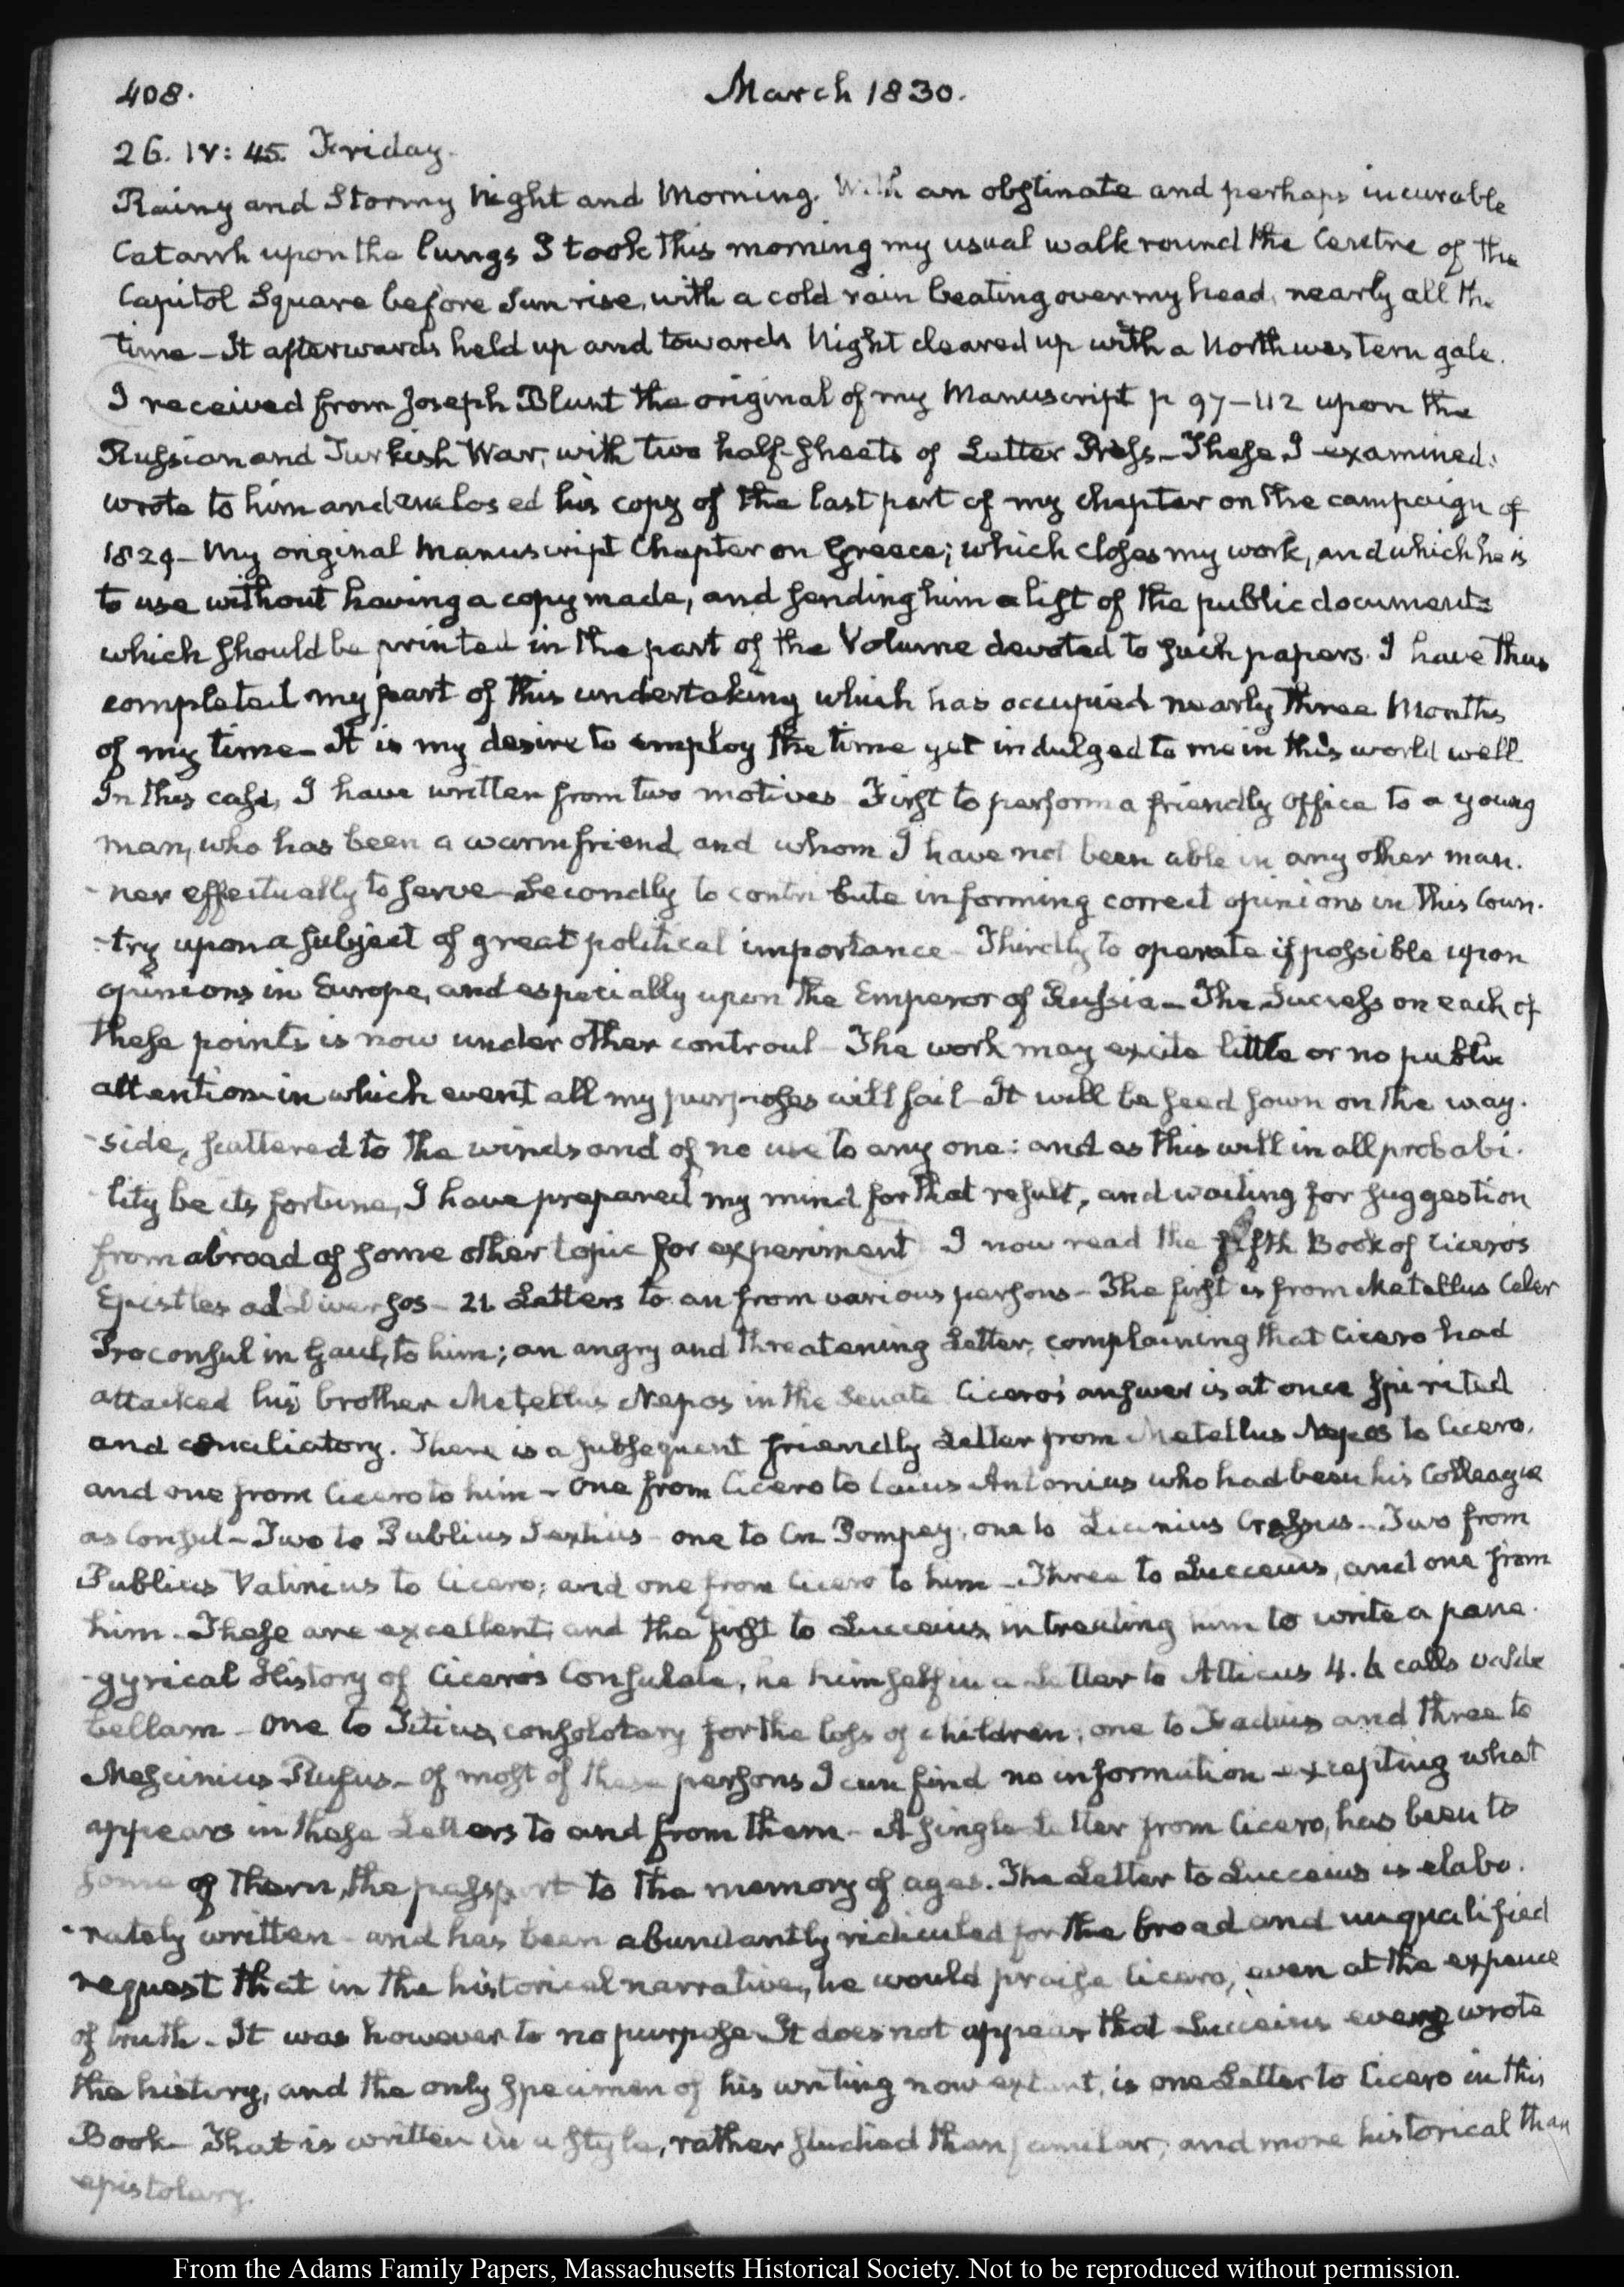 408.
March 1830.
26. IV: 45. Friday.
Rainy and Stormy Night and Morning. With an obstinate and perhaps incurable
Catarrh upon the lungs I took this morning my usual walk round the Centre of the
Capitol Square before Sunrise, with a cold rain beating over my head, nearly all the
time - It afterwards held up and towards Night cleared up with a North western gale.
I received from Joseph Blunt the original of my Manuscript p 97-112 upon the
Russian and Turkish War, with two half-sheets of Letter Press - These I examined:
wrote to him and enclosed his copy of the last part of my chapter on the campaign of
1829 - My original Manuscript Chapter on Greece; which closes my work, and which he is
to use without having a copy made, and sending him a list of the public documents
which should be printed in the part of the Volume devoted to such papers. I have thus
completed my part of this undertaking which has occupied nearly three Months
of my time - It is my desire to employ the time yet indulged to me in this world well
In this case, I have written from two motives First to perform a friendly office to a young
man, who has been a warm friend and whom I have not been able in any other man-
-ner effectually to serve - Secondly to contribute in forming correct opinions in this Coun-
-try upon a subject of great political importance - Thirdly to operate if possible upon
opinions in Europe, and especially upon the Emperor of Russia - The Success on each of
these points is now under other controul - The work may excite little or no public
attention in which event all my purposes will fail - It will be seed sown on the way-
-side, scattered to the winds and of no use to any one: and as this will in all probabi-
lity be its fortune, I have prepared my mind for that result, and waiting for suggestion
from abroad of some other topic for experiment I now read the fifth Book of Cicero's
Epistles ad Diversos - 21 Letters to an from various persons - The first is from Metellus Celer
Proconsul in Gaul, to him; an angry and threatening Letter, complaining that Cicero had
attacked his brother Metellus Nepos in the Senate Cicero's answer is at once spirited
and conciliatory. There is a subsequent friendly Letter from Metellus Nepos to Cicero,
and one from Cicero to him - One from Cicero to Caius Antonius who had been his Colleague
as Consul - Two to Publius Sextius - one to Cn Pompey, one to Licinius Crassus - Two from
Publius Vatinius to Cicero; and one from Cicero to him - Three to Lucceius, and one from
him - These are excellent, and the first to Lucceius, intreating him to write a pane-
-gyrical History of Cicero's Consulate, he himself in a Letter to Atticus 4. 6 calls valde
bellam - One to Titius, consolotary for the loss of children, one to Fadius and three to
Mescinius Rufus - of most of these persons I can find no information excepting what
appears in these Letters to and from them - A single Letter from Cicero, has been to
some of them, the passport to the memory of ages. The Letter to Lucceius is elabo-
-rately written - and has been abundantly ridiculed for the broad and unqualified
request that in the historical narrative, he would praise Cicero, even at the expence
of truth - It was however to no purpose It does not appear that Lucceius ever wrote
the history, and the only specimen of his writing now extant, is one Letter to Cicero in this
Book - That is written in a style, rather studied than familiar, and more historical than
epistolary.
From the Adams Family Papers, Massachusetts Historical Society. Not to be reproduced without permission.